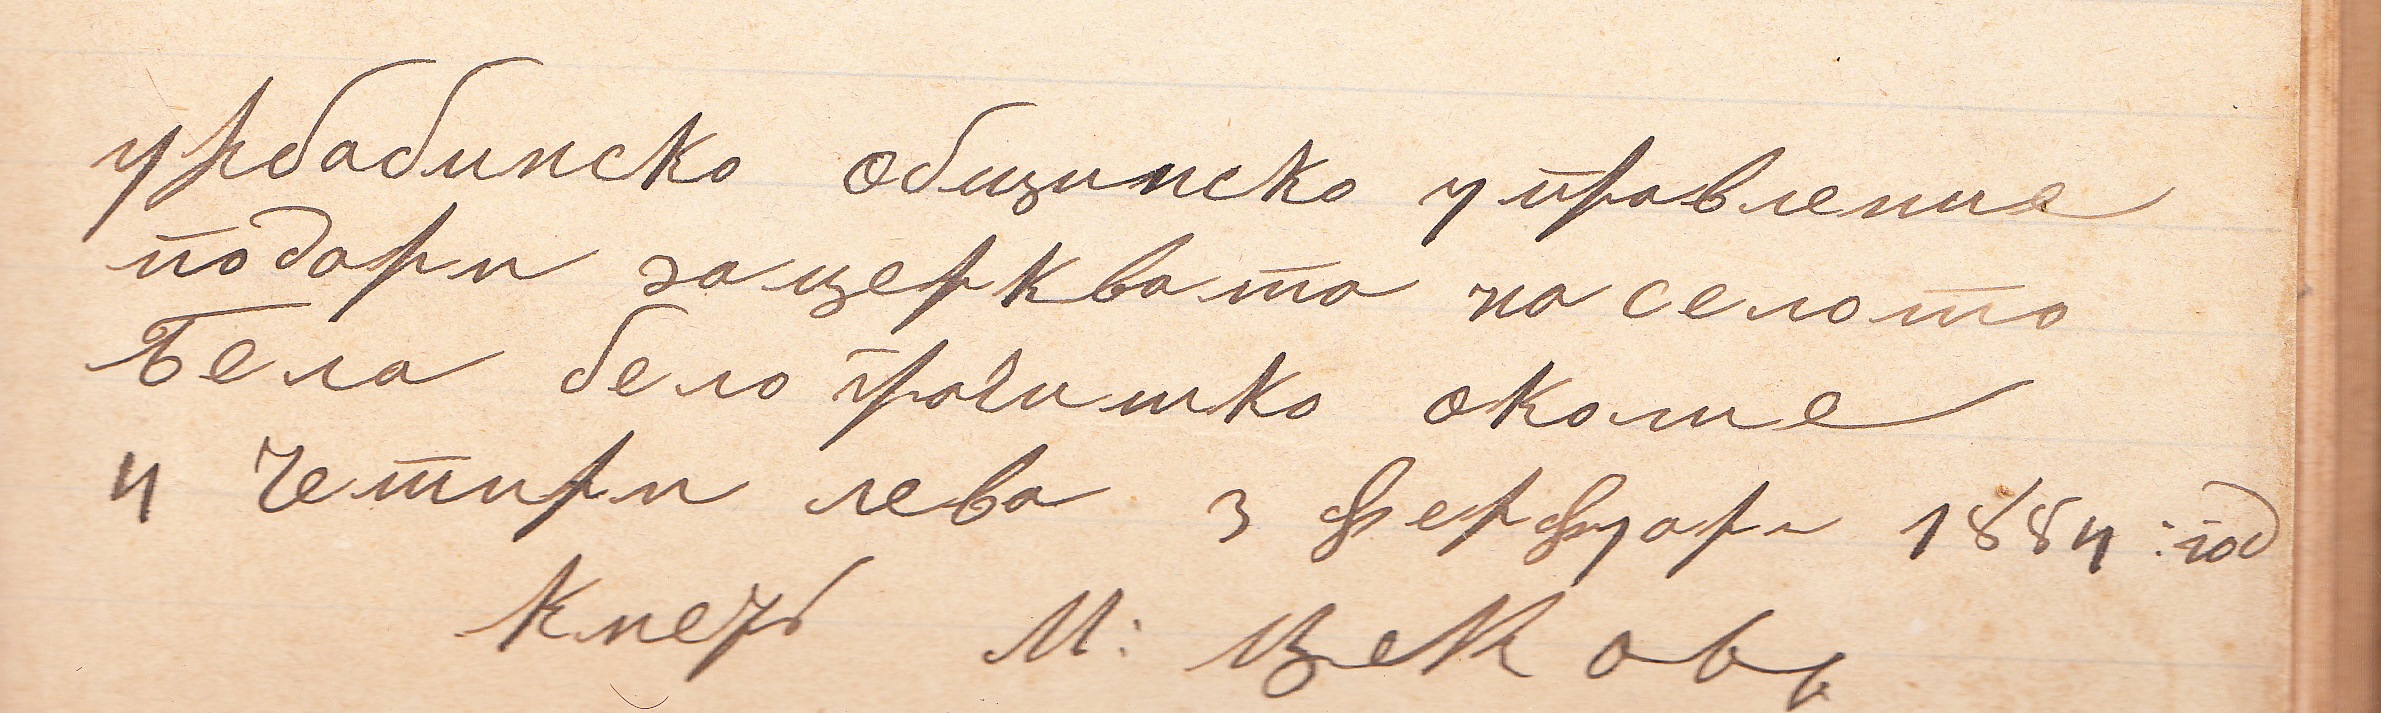 урбабинско общинско управление
подари за церквата на селото
Бела белограчишко околие
4 четири лева 3 ферфуари 1884 : год
Кметъ М: Цековъ